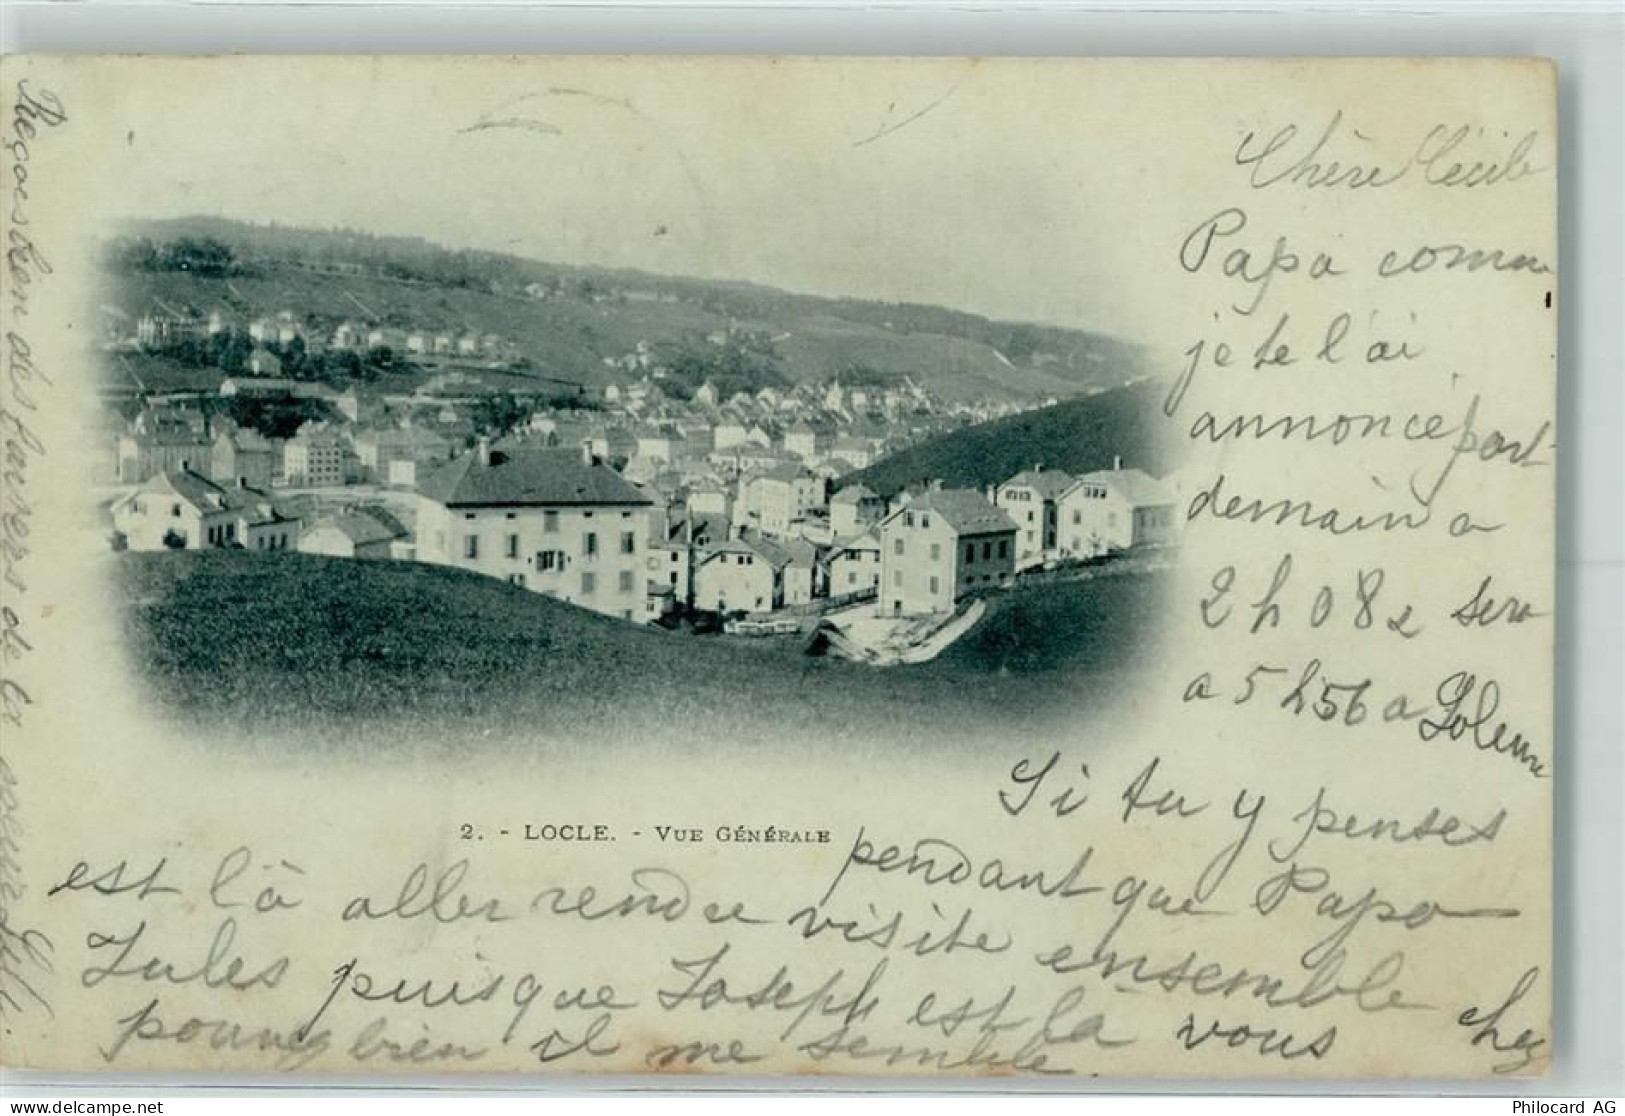 Chère Cécile
Papa comme
je te l'ai
annoncé part
demain a
2 h 08 sera
a 5 h 56 a Soleure
Si tu y penses
pendant que Papa
est là aller rendre visite ensemble chez
Jules puisque Joseph est la vous
pouvez bien il me semble
Reçois bien des baisers de ta soeur
2. - LOCLE. - VUE GÉNÉRALE
delcampe.net
Philocard AG